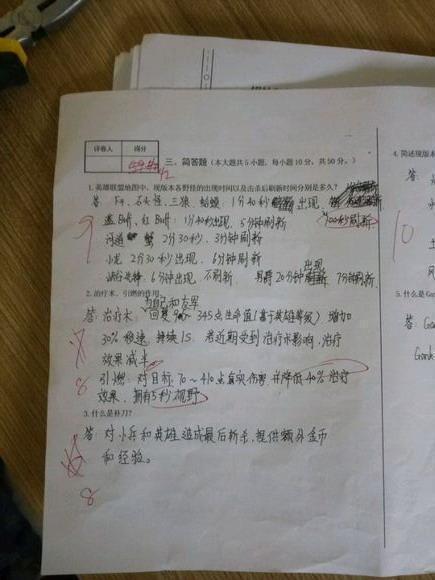 评卷人 得分
三、简答题（本大题共5小题，每小题10分，共50分。）
1.英雄联盟地图中，现版本各野怪的出现时间以及击杀后刷新时间分别是多久？
答 F4、石头怪、三狼、蛤蟆：1分40秒出现， 100秒刷新
9
蓝Buff、红Buff：1分40秒出现，5分钟刷新
河道 蟹 2分30秒，3分钟刷新
小龙 2分30秒出现，6分钟刷新
峡谷先锋：6分钟出现 不刷新 男爵20分钟出现 7分钟刷新
2.治疗术、引燃的作用
答：治疗术：为自己和友军回复90~345点生命值（基于英雄等级）增加
30%移速，持续1S. 若近期受到治疗术影响，治疗
效果减半
8
引燃：对目标70~410点真实伤害 并降低40%治疗
效果，拥有5秒视野
3.什么是补刀？
答：对小兵和英雄造成最后斩杀，提供额外金币
和经验。
8
4.简述现版本
答：
10
5.什么是G
答：